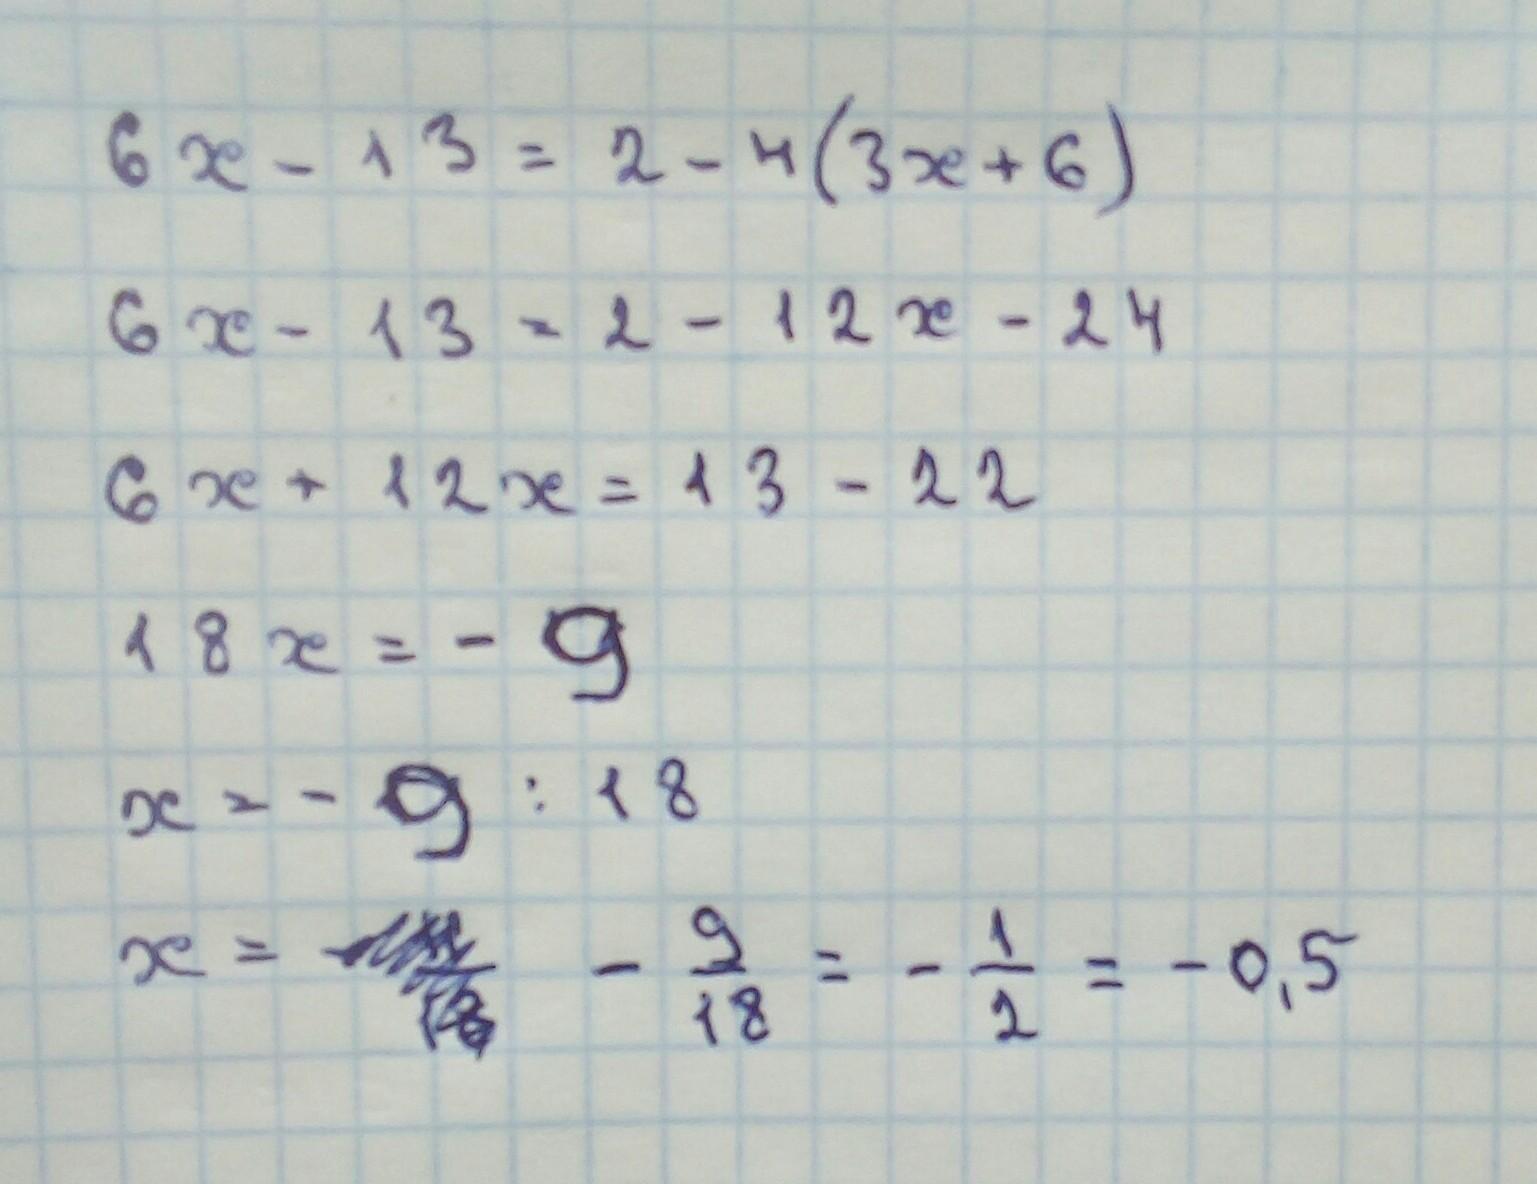 6x - 13 = 2 - 4(3x + 6)
6x - 13 = 2 - 12x - 24
6x + 12x = 13 - 22
18x = - 9
x = - 9 : 18
x = - 9/18 = - 1/2 = - 0,5